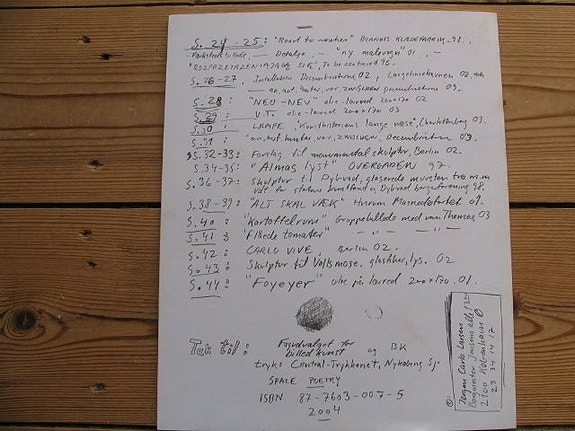 S. 24-25: "Road to nowhere" DENNIS KLOEFARUM. 98.
— Detalje, — "ny maleregn" 01, —
"ROZPRZEŻRZENIAJĄCE SIĘ", To be continued 96.
S. 26-27. Installation Decembristerne 02, Langelinietunnen 02,
an, auf, hinter, vor, zwischen Decembristerne 03.
S. 28: "NEU-NEU" olie-lærred 200x170 02
S. 29: U.T. olie-lærred 200x170 03
S. 30: LAMPE, "Kunsthistoriens lange næse", Charlottenborg 03.
S. 31: "an, auf, hinter, vor, zwischen, Decembristerne 03.
S. 32-33: Forslag til monumental skulptur, Berlin 02.
S. 34-35: "Almas lyst" OVERGADEN 97.
S. 36-37: Skulptur til Dybvad, glaserede mursten træ m.m
for statens kunstfond og Dybvad borgerforening 98.
S. 38-39: "ALT SKAL VÆK" Husum 01.
S. 40: "Kartoffelrum" Gruppebillede med van Thomas 03
S. 41: "Flåede tomater" — " — " —
S. 42: CARLO VIVE, Berlin 02.
S. 43: Skulptur til Vollsmose. glasfiber, lys. 02
S. 44: "Foyeyer" olie på lærred 200x170. 01.
Tak til: Fagudvalget for
billedkunst og BK
tryk: Central-Trykkeriet, Nykøbing Sj.
SPACE POETRY
ISBN 87-7603-007-5
2004
Jørgen Carlo Larsen
Borgmester Jensens allé
2100 København Ø